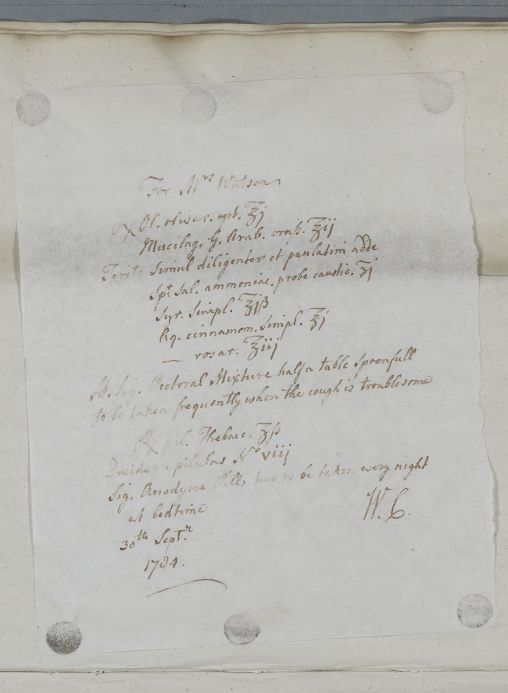 For Mrs Watson
℞ Ol. olivar. opt. ℥j
Mucilag. G. Arab. crass. ℥ij
Terito simul diligenter et paulatim adde
Spt. Sal. ammoniac. probe caustic. ʒj
Syr. Simpl. ℥jß
Aq. cinnamom. Simpl. ℥j
— rosar. ℥iij
M. Sig. Pectoral Mixture half a table spoonfull
to be taken frequently when the cough is troublesome
℞ pil. Thebaic. ʒß
Divide in pilulas No viij
Sig. Anodyne Pills two to be taken every night
at bedtime
W. C.
30th Septr
1784.